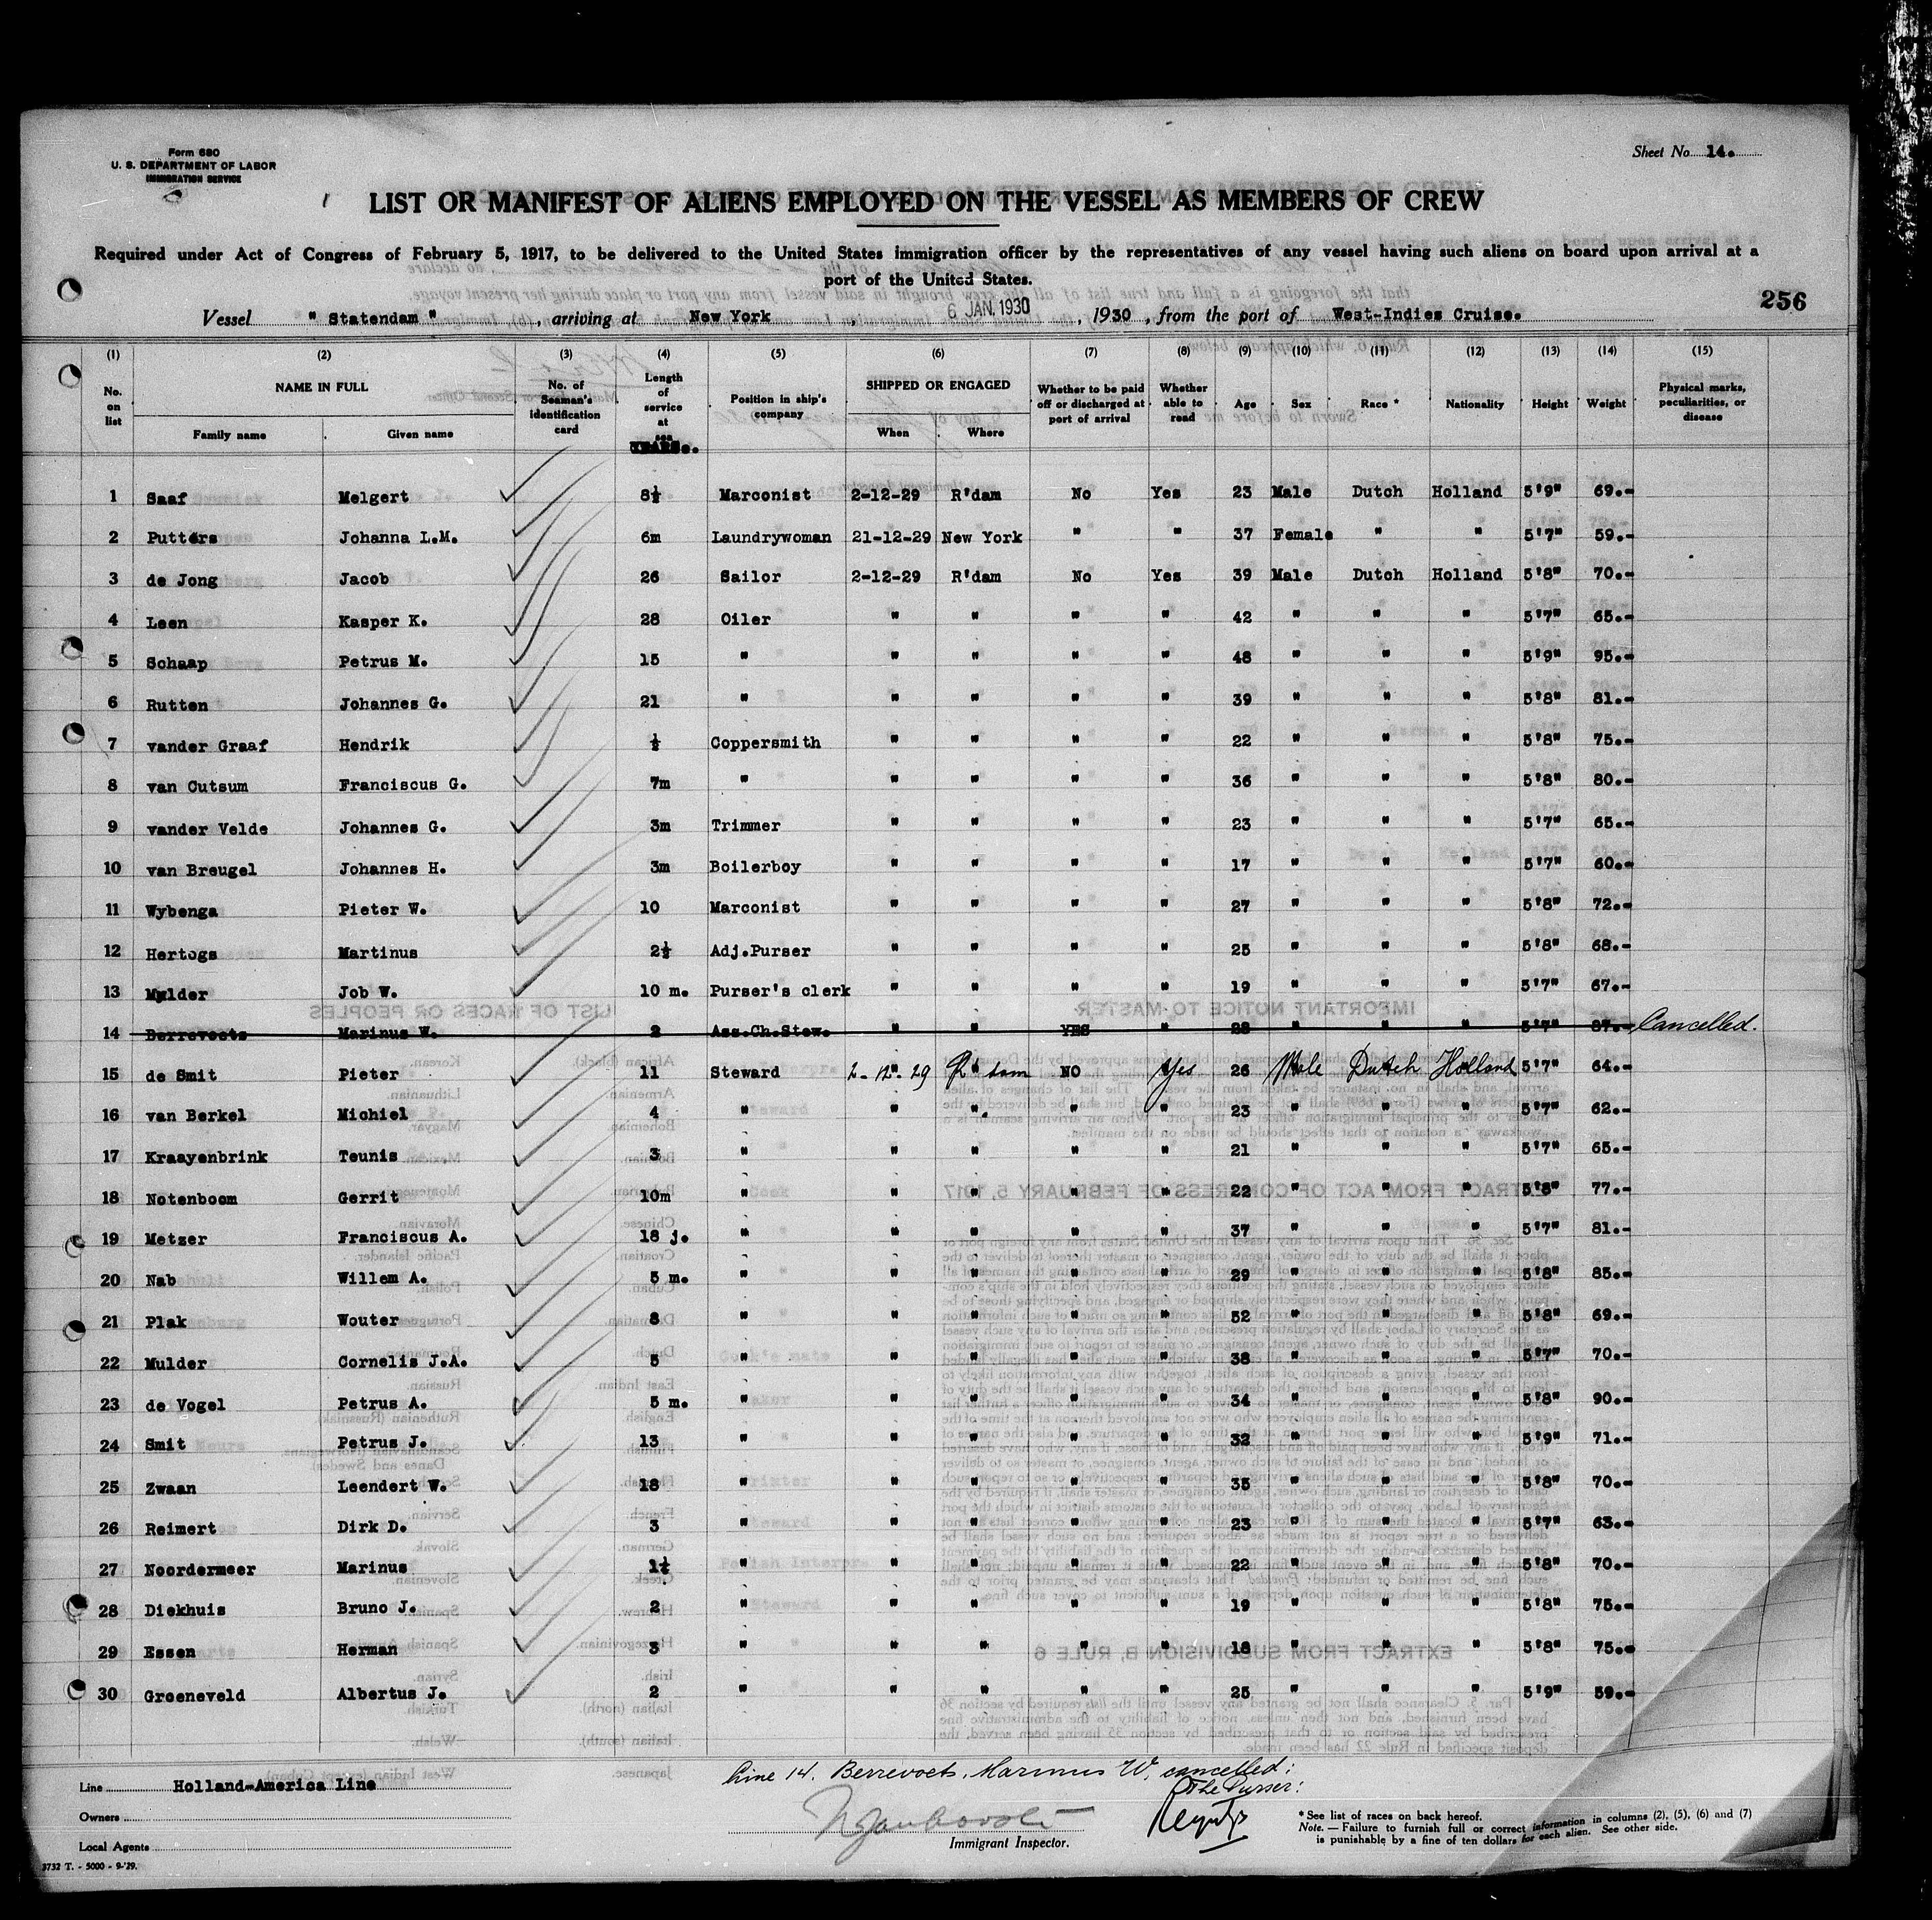 Form 680
U. S. DEPARTMENT OF LABOR
IMMIGRATION SERVICE
Sheet No. 14.
LIST OR MANIFEST OF ALIENS EMPLOYED ON THE VESSEL AS MEMBERS OF CREW
Required under Act of Congress of February 5, 1917, to be delivered to the United States immigration officer by the representatives of any vessel having such aliens on board upon arrival at a
port of the United States.
256
Vessel " Statendam " , arriving at New York , 6 JAN. 1930 , 1930 , from the port of West-Indies Cruise.
(1) (2) (3) (4) (5) (6) (7) (8) (9) (10) (11) (12) (13) (14) (15)
No. on list NAME IN FULL Family name Given name No. of Seaman's identification card Length of service at sea YEARS. Position in ship's company SHIPPED OR ENGAGED When Where Whether to be paid off or discharged at port of arrival Whether able to read Age Sex Race * Nationality Height Weight Physical marks, peculiarities, or disease
1 Saaf Melgert 8½ Marconist 2-12-29 R'dam No Yes 23 Male Dutch Holland 5'9" 69.-
2 Putters Johanna L.M. 6m Laundrywoman 21-12-29 New York " " 37 Female " " 5'7" 59.-
3 de Jong Jacob 26 Sailor 2-12-29 R'dam No Yes 39 Male Dutch Holland 5'8" 70.-
4 Leen Kasper K. 28 Oiler " " " " 42 " " " 5'7" 65.-
5 Schaap Petrus M. 15 " " " " " 48 " " " 5'9" 95.-
6 Rutten Johannes G. 21 " " " " " 39 " " " 5'8" 81.-
7 vander Graaf Hendrik ½ Coppersmith " " " " 22 " " " 5'8" 75.-
8 van Cutsum Franciscus G. 7m " " " " " 36 " " " 5'8" 80.-
9 vander Velde Johannes G. 3m Trimmer " " " " 23 " " " 5'7" 65.-
10 van Breugel Johannes H. 3m Boilerboy " " " " 17 " " " 5'7" 60.-
11 Wybenga Pieter W. 10 Marconist " " " " 27 " " " 5'8" 72.-
12 Hertogs Martinus 2½ Adj.Purser " " " " 25 " " " 5'8" 68.-
13 Mulder Job W. 10 m. Purser's clerk " " " " 19 " " " 5'7" 67.-
14 Berrevoets Marinus W. 2 Ass.Ch.Stew. " " YES " 28 " " " 5'7" 87.- Cancelled.
15 de Smit Pieter 11 Steward 2-12-29 R'dam NO Yes 26 Male Dutch Holland 5'7" 64.-
16 van Berkel Michiel 4 " " " " " 23 " " " 5'7" 62.-
17 Kraayenbrink Teunis 3 " " " " " 21 " " " 5'7" 65.-
18 Notenboom Gerrit 10m " " " " " 22 " " " 5'8" 77.-
19 Metzer Franciscus A. 18 j. " " " " " 37 " " " 5'7" 81.-
20 Nab Willem A. 5 m. " " " " " 29 " " " 5'8" 85.-
21 Plak Wouter 8 " " " " " 52 " " " 5'8" 69.-
22 Mulder Cornelis J.A. 5 " " " " " 38 " " " 5'7" 70.-
23 de Vogel Petrus A. 5 m. " " " " " 34 " " " 5'8" 90.-
24 Smit Petrus J. 13 " " " " " 32 " " " 5'9" 71.-
25 Zwaan Leendert W. 18 " " " " " 35 " " " 5'8" 70.-
26 Reimert Dirk D. 3 " " " " " 23 " " " 5'7" 63.-
27 Noordermeer Marinus 1½ " " " " " 22 " " " 5'8" 70.-
28 Diekhuis Bruno J. 2 " " " " " 19 " " " 5'8" 75.-
29 Essen Herman 3 " " " " " 18 " " " 5'8" 75.-
30 Groeneveld Albertus J. 2 " " " " " 25 " " " 5'9" 59.-
Line 14. Berrevoets, Marinus W. cancelled:
The Purser:
Line Holland-America Line
Owners
Local Agents
Immigrant Inspector.
* See list of races on back hereof.
Note. — Failure to furnish full or correct information in columns (2), (5), (6) and (7)
is punishable by a fine of ten dollars for each alien. See other side.
3732 T. - 5000 - 9-'29.